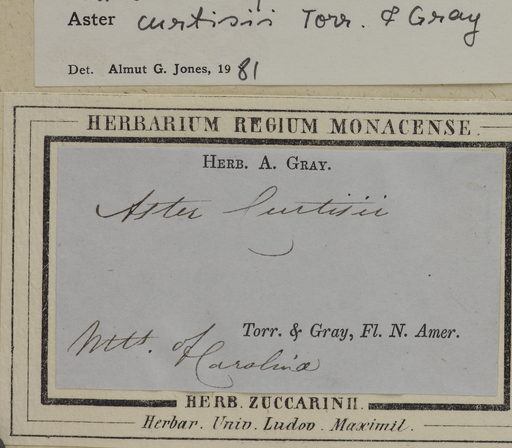 Aster curtisii Torr. & Gray
Det. Almut G. Jones, 1981
HERBARIUM REGIUM MONACENSE.
HERB. A. GRAY.
Aster Curtisii
Torr. & Gray, Fl. N. Amer.
Mtts. of Carolina
HERB. ZUCCARINII.
Herbar. Univ. Ludov. Maximil.